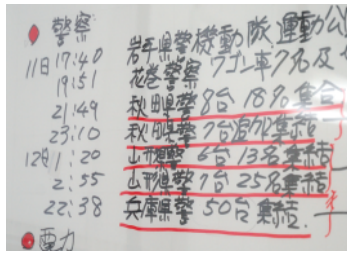 警察
11日 17:40 岩手県警 機動隊、運動公
19:51 花巻警察 ワゴン車7名及
21:49 秋田県警 8台 18名集合
23:10 秋田県警 7台追加集結
12日 1:20 山形県警 6台 13名集結
2:55 山形県警 7台 25名集結
22:38 兵庫県警 50台 集結
電力